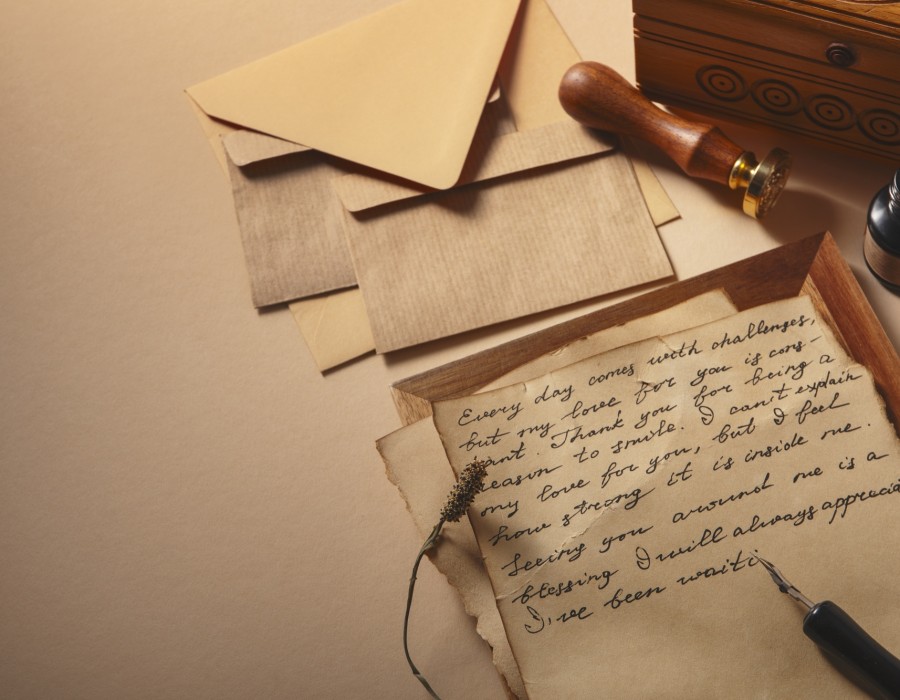 Every day comes with challenges,
but my love for you is cons-
tant. Thank you for being a
reason to smile. I can't explain
my love for you, but I feel
how strong it is inside me.
Seeing you around me is a
blessing I will always apprecia
I've been waiti